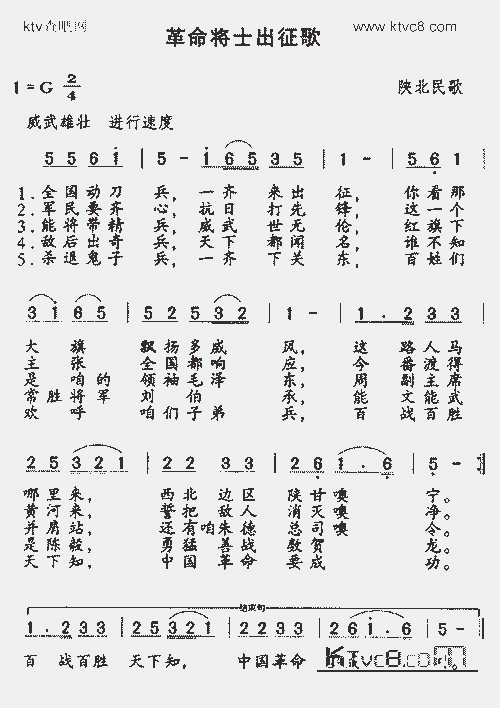 ktv点吧网 www.ktvc8.com
革命将士出征歌
1=G 2/4 陕北民歌
威武雄壮 进行速度
5 5 6 1 | 5 - 1 6 5 3 5 | 1 - | 5 6 1 |
1.全国动刀 兵，一齐 来出 征，你看那
2.军民要齐 心，抗日 打先 锋，这一个
3.能将带精 兵，威武 世无 伦，红旗下
4.敌后出奇 兵，天下 都闻 名，谁不知
5.杀退鬼子 兵，一齐 下关 东，百姓们
3 1 6 5 | 5 2 5 3 2 | 1 - | 1 . 2 3 3 |
大 旗 飘扬多威 风，这 路人马
主 张 全国都响 应，今 番渡得
是 咱的 领袖毛泽 东，周 副主席
常 胜将军 刘 伯 承，能 文能武
欢 呼 咱们子弟 兵，百 战百胜
2 5 3 2 1 | 2 2 3 3 | 2 6 1 . 6 | 5 - :|
哪里来， 西北边区 陕甘噢 宁。
黄河来， 誓把敌人 消灭噢 净。
并肩站， 还有咱朱德 总司噢 令。
是陈毅， 勇猛善战 数贺 龙。
天下知， 中国革命 要成 功。
结束句
1 . 2 3 3 | 2 5 3 2 1 | 2 2 3 3 | 2 6 1 . 6 | 5 - ||
百 战百胜 天下知， 中国革命
KTvc8.com